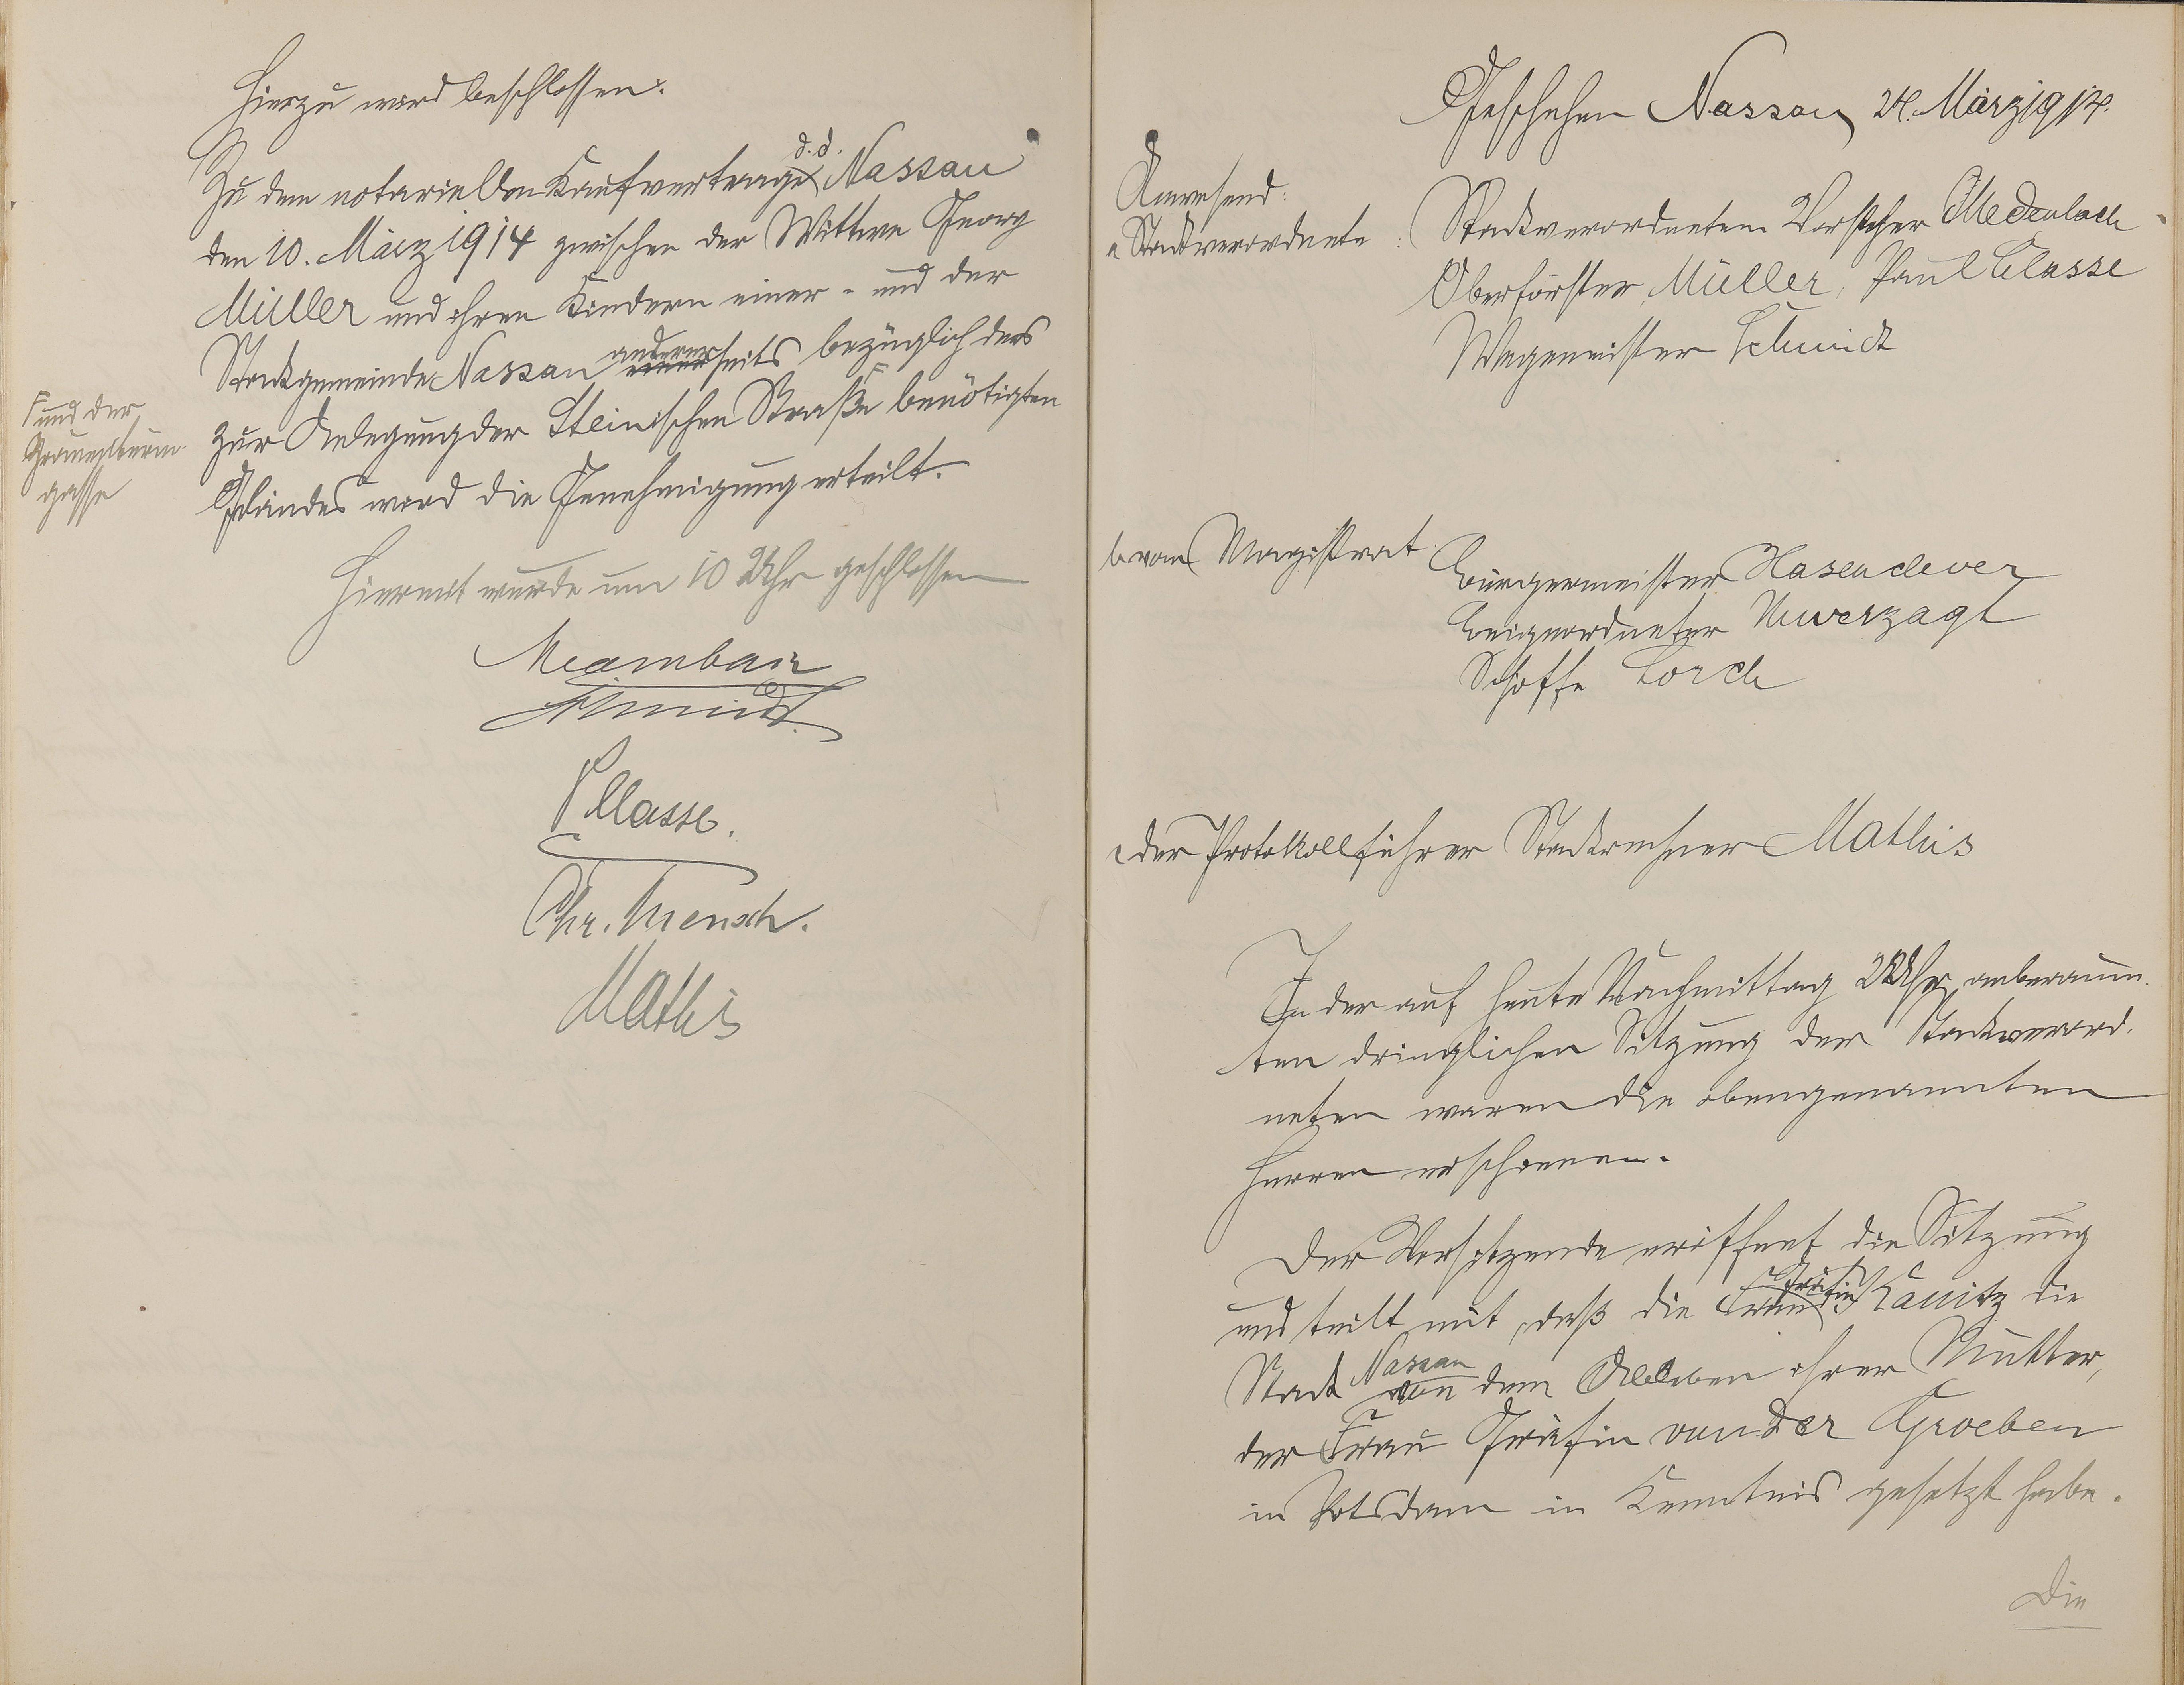 Hierzu wird beschlossen:
Zu dem notariellen Kaufvertrage d. d. Nassau
den 10. März 1914 zwischen der Wittwe Georg
Müller und ihren Kindern einer- und der
Stadtgemeinde Nassau andererseits bezüglich des
zur Anlegung der Steinschen Straße F benötigten
Geländes wird die Genehmigung erteilt.
F und der
gasse
Hiermit wurde um 10 Uhr geschlossen
Schmidt
P Classe.
Chr. Mensch.
Mathis
Geschehen Nassau, 24. März 1914.
Anwesend:
a Stadtverordnete: Stadtverordneten Vorsteher Medenbach
Oberförster Müller, Paul Classe
Wegemeister Schmidt
b vom Magistrat: Bürgermeister Hasenclever
Beigeordneter Unverzagt
Schöffe Lorch
c der Protokollführer Stadtrechner Mathis
In der auf heute Nachmittag 2 Uhr anberaum-
ten dringlichen Sitzung der Stadtverord-
neten waren die obengenannten
Herren erschienen.
Der Vorsitzende eröffnet die Sitzung
und teilt mit, daß die Gräfin Kanitz die
Stadt Nassau von dem Ableben ihrer Mutter,
der Frau Gräfin von der Groeben
in Potsdam in Kenntnis gesetzt habe.
Die